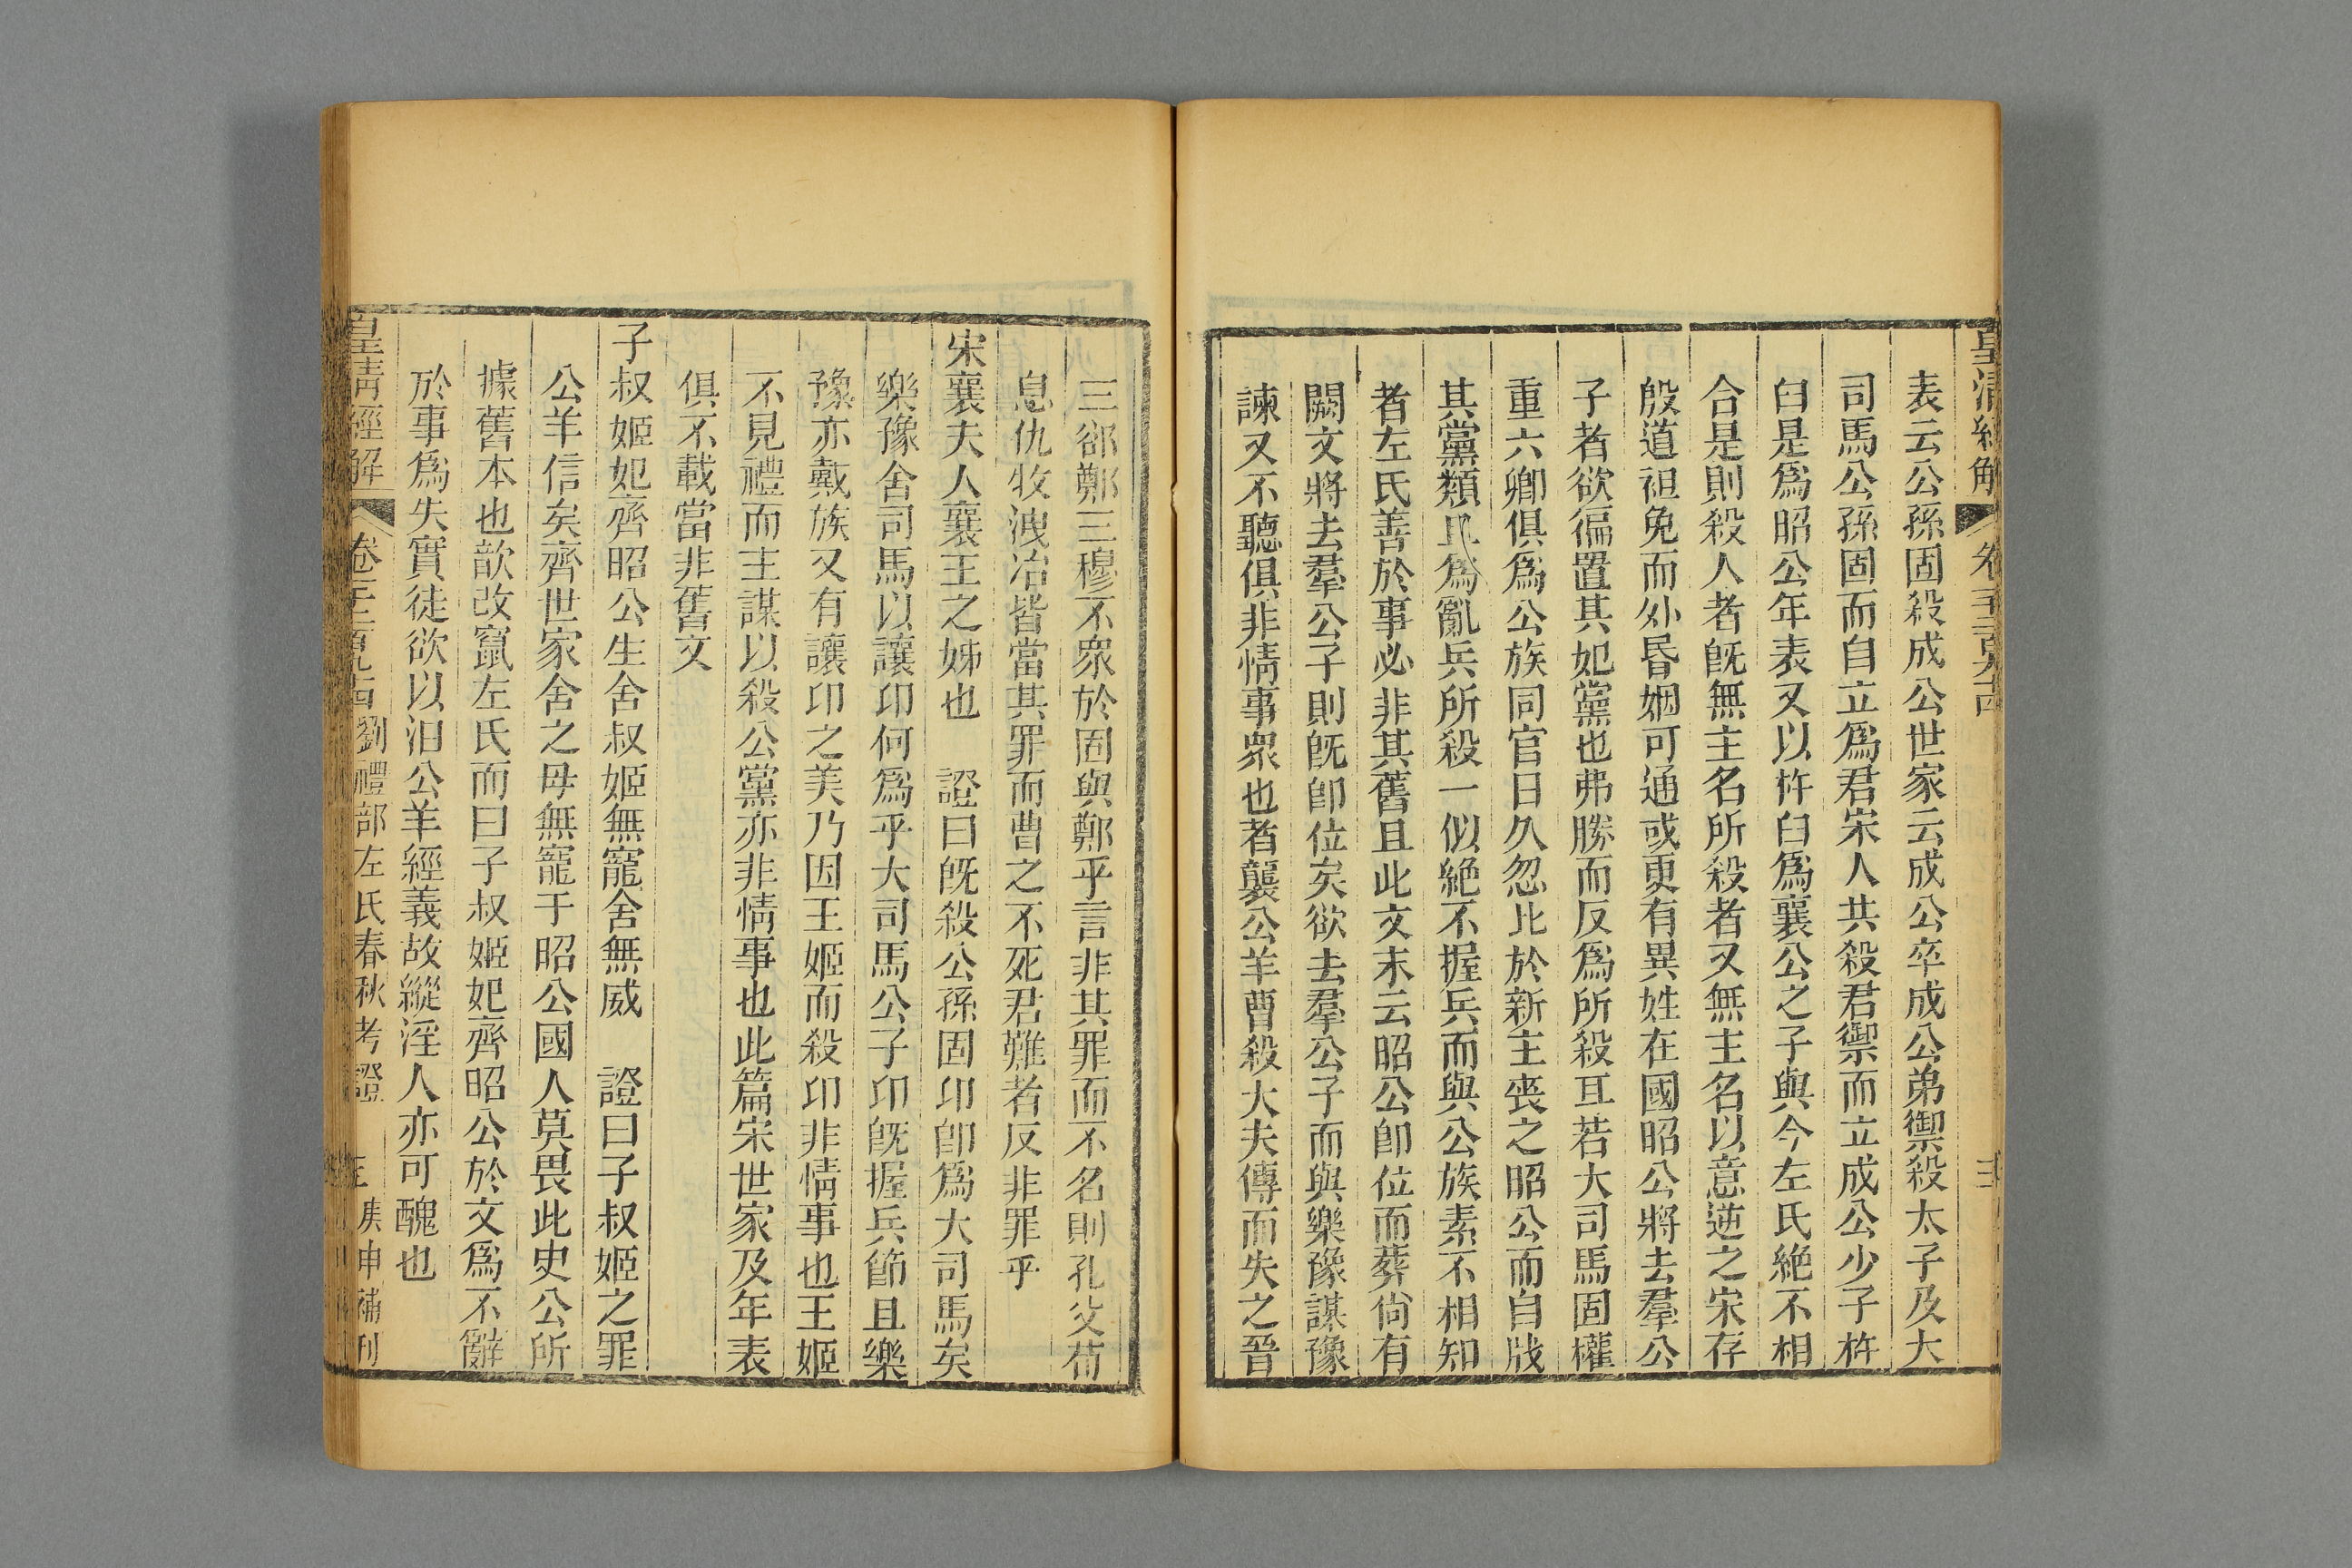 皇清經解
表云公孫固殺成公世家云成公卒成公弟禦殺太子及大
司馬公孫固而自立爲君宋人共殺君禦而立成公少子杵
臼是爲昭公年表又以杵臼爲襄公之子與今左氏絶不相
合是則殺人者旣無主名所殺者又無主名以意逆之宋存
殷道袒免而外昏姻可通或更有異姓在國昭公將去羣公
子者欲徧置其妃黨也弗勝而反爲所殺耳若大司馬固權
重六卿俱爲公族同官日久忽比於新主喪之昭公而自戕
其黨類且爲亂兵所殺一似絶不握兵而與公族素不相知
者左氏善於事必非其舊且此文末云昭公卽位而葬尙有
闕文將去羣公子則旣卽位矣欲去羣公子而與樂豫謀豫
諫又不聽俱非情事眾也者襲公羊曹殺大夫傳而失之晉
三郤鄭三穆不眾於固與鄭乎言非其罪而不名則孔父荀
息仇牧洩冶皆當其罪而曹之不死君難者反非罪乎
宋襄夫人襄王之姊也　證曰旣殺公孫固卬卽爲大司馬矣
樂豫舍司馬以讓卬何爲乎大司馬公子卬旣握兵節且樂
豫亦戴族又有讓卬之美乃因王姬而殺卬非情事也王姬
不見禮而主謀以殺公黨亦非情事也此篇宋世家及年表
俱不載當非舊文
子叔姬妃齊昭公生舍叔姬無寵舍無威　證曰子叔姬之罪
公羊信矣齊世家舍之母無寵于昭公國人莫畏此史公所
據舊本也歆改竄左氏而曰子叔姬妃齊昭公於文爲不辭
於事爲失實徒欲以汩公羊經義故縱淫人亦可醜也
皇清經解　劉禮部左氏春秋考證　庚申補刊